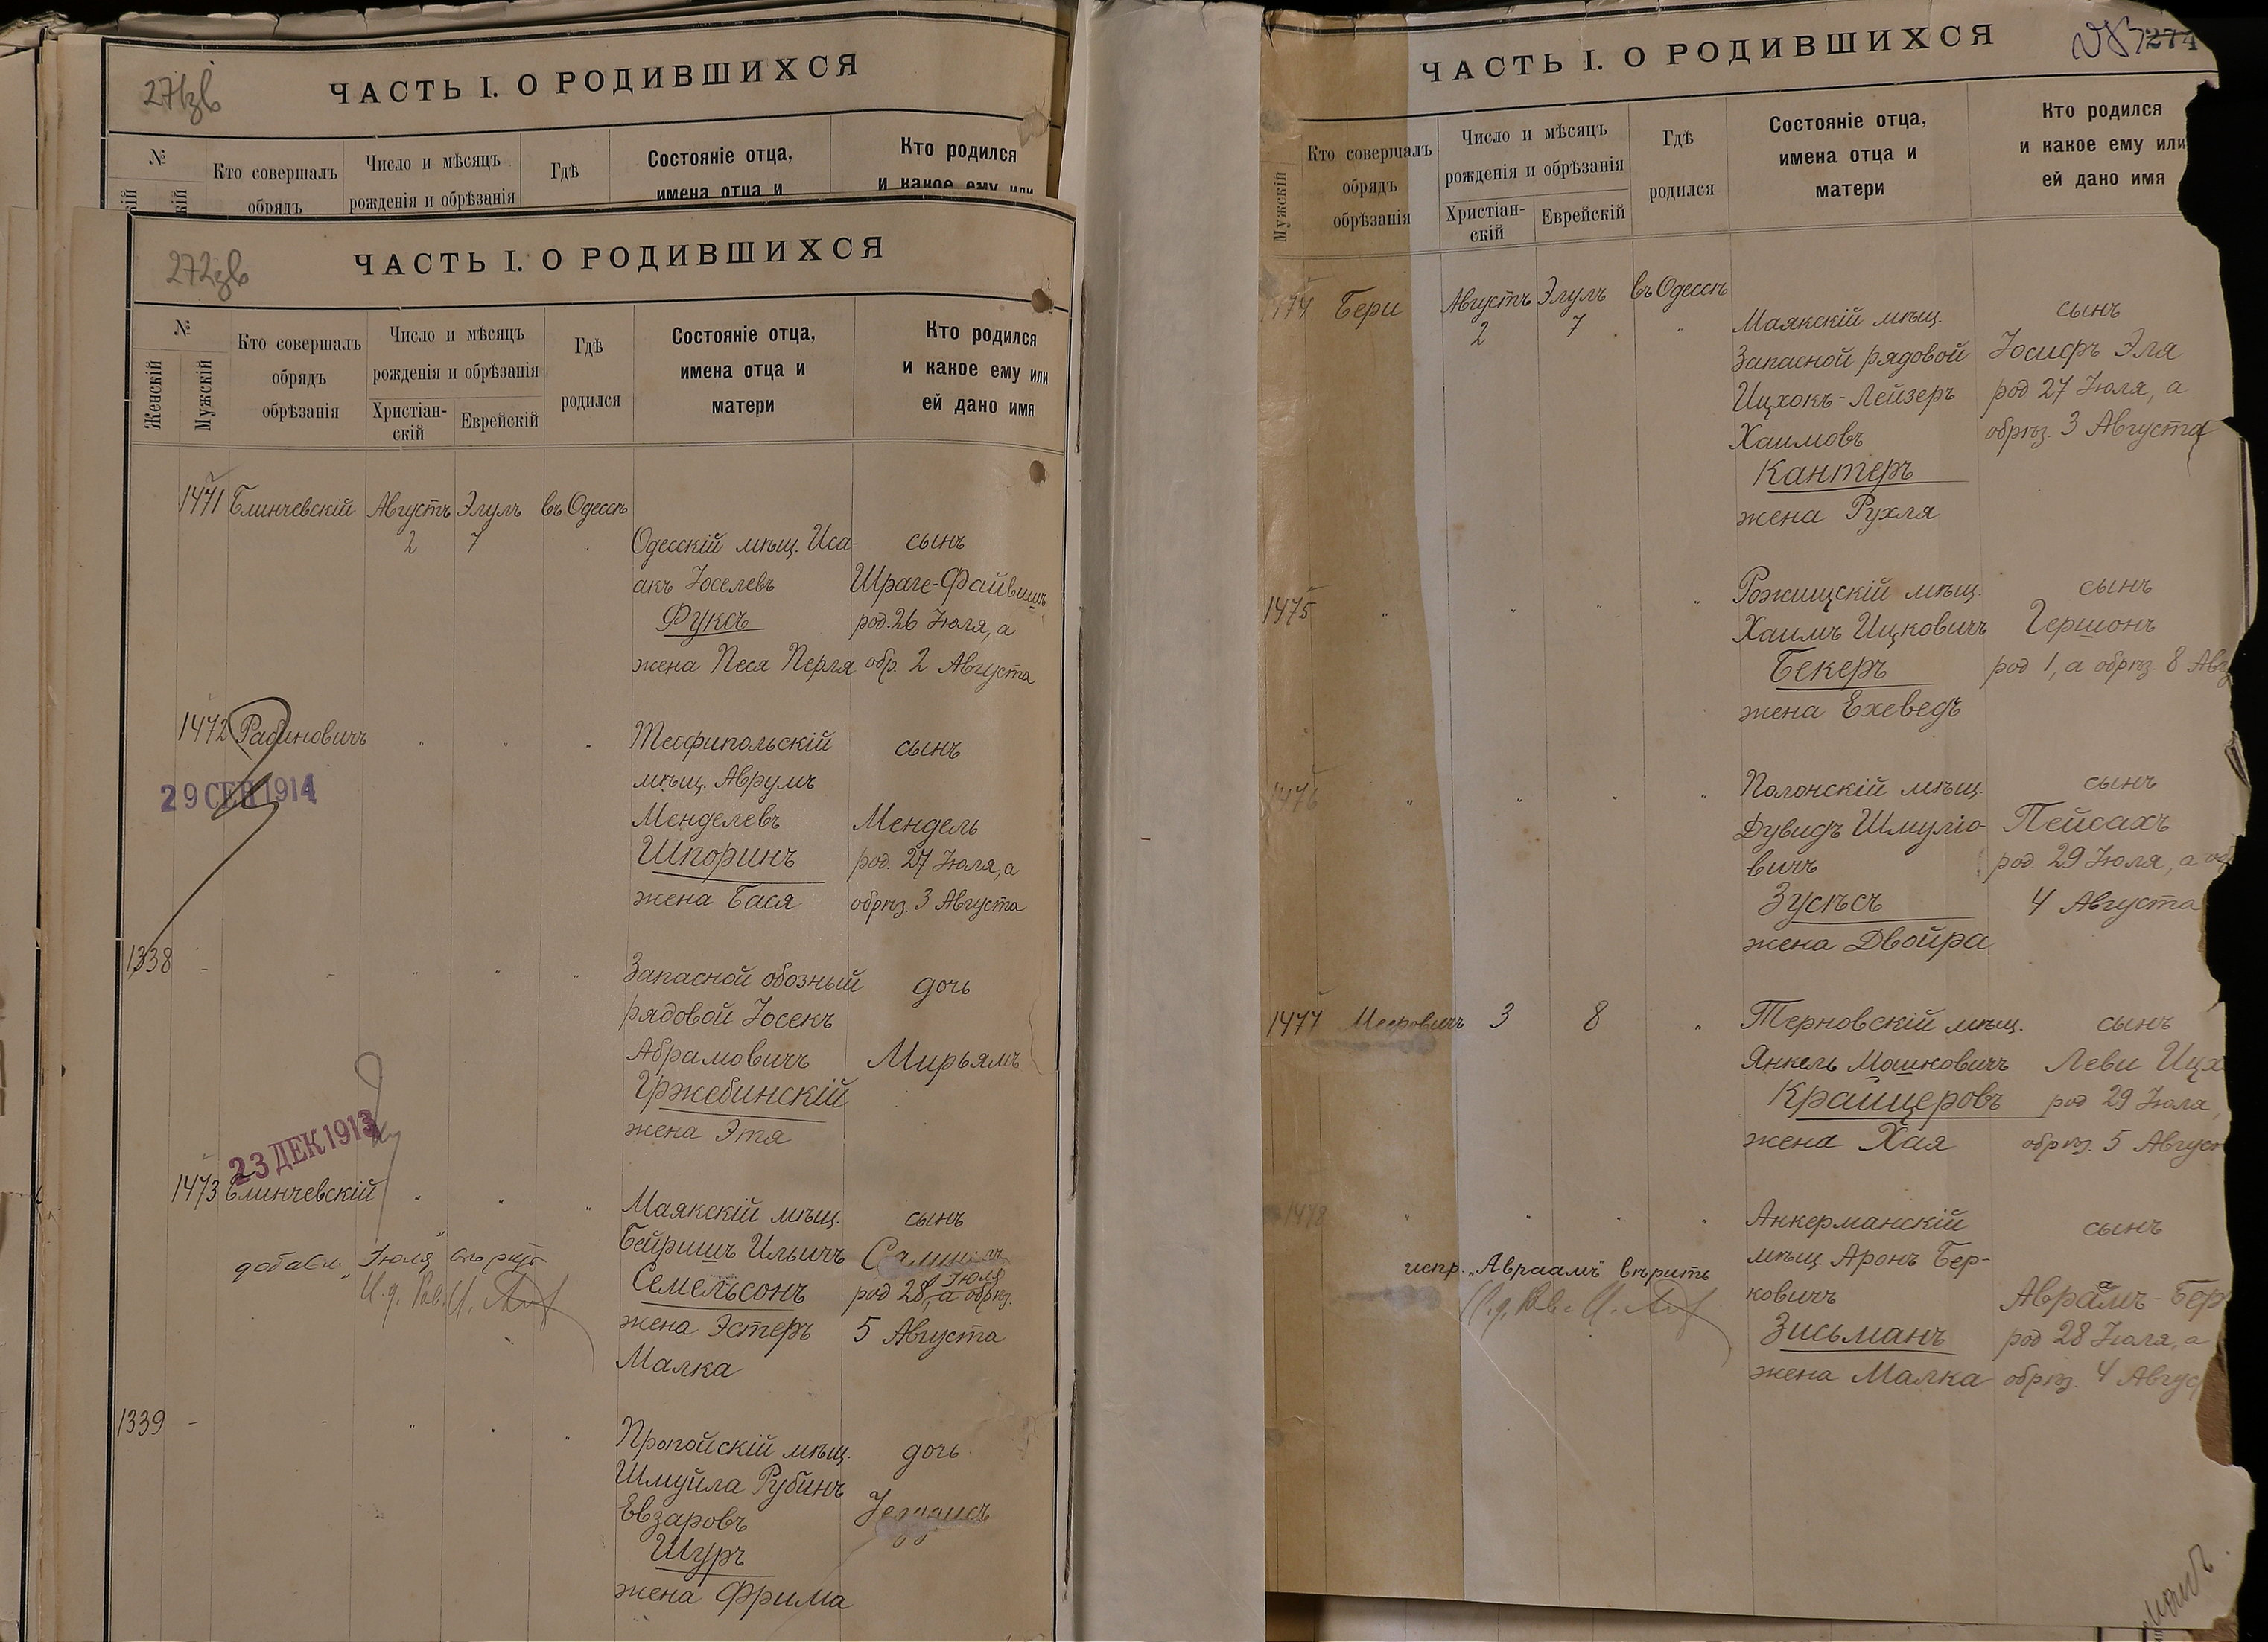 271зв
ЧАСТЬ I. О РОДИВШИХСЯ
№
Кто совершалъ
обрядъ
Число и мѣсяцъ
рожденія и обрѣзанія
Гдѣ
Состояніе отца,
имена отца и
Кто родился
и какое ему или
272зв
ЧАСТЬ I. О РОДИВШИХСЯ
№
Женскій
Мужскій
Кто совершалъ
обрядъ
обрѣзанія
Число и мѣсяцъ
рожденія и обрѣзанія
Христіан-
скій
Еврейскій
Гдѣ
родился
Состояніе отца,
имена отца и
матери
Кто родился
и какое ему или
ей дано имя
1471 Блинчевскій Августъ Элулъ въ Одессѣ
2 7 "
Одесскій мѣщ. Иса- сынъ
акъ Іоселевъ Шраге-Файвишъ
Фуксъ род. 26 Іюля, а
жена Песя Перля обр. 2 Августа
1472 Рабиновичъ " " " Теофипольскій сынъ
мѣщ. Аврумъ
29 СЕН 1914
Менделевъ Мендель
Шпоринъ род. 27 Іюля, а
жена Бася обрѣз. 3 Августа
1338 - - " " " Запасной обозный дочь
рядовой Іосекъ
Абрамовичъ Мирьямъ
Гржебинскій
жена Этя
23 ДЕК 1913
1473 Блинчевскій " " " Маякскій мѣщ. сынъ
Бейришъ Ильичъ
Семельсонъ род 28 Іюля, а обрѣз.
жена Эстеръ 5 Августа
Малка
добавл. "Іюля"
1339 - - " " " Пропойскій мѣщ. дочь
Шмуйла Рубинъ
Евзаровъ
Шуръ
жена Фрима
274
ЧАСТЬ I. О РОДИВШИХСЯ
Мужскій
Кто совершалъ
обрядъ
обрѣзанія
Число и мѣсяцъ
рожденія и обрѣзанія
Христіан-
скій
Еврейскій
Гдѣ
родился
Состояніе отца,
имена отца и
матери
Кто родился
и какое ему или
ей дано имя
1474 Бери Августъ Элулъ въ Одессѣ
2 7 "
Маякскій мѣщ. сынъ
Запасной рядовой Іосифъ Эля
Ицхокъ-Лейзеръ род 27 Іюля, а
Хаимовъ обрѣз. 3 Августа
Кантеръ
жена Рухля
1475 " " " " Рожищскій мѣщ. сынъ
Хаимъ Ицковичъ Гершонъ
Бекеръ род 1, а обрѣз. 8 Авг
жена Ехеведъ
1476 " " " " Полонскій мѣщ. сынъ
Дувидъ Шмуліо- Пейсахъ
вичъ род. 29 Іюля, а об
Зусьсъ 4 Августа
жена Двойра
1477 Мееровичъ 3 8 " Терновскій мѣщ. сынъ
Янкель Мошковичъ Леви Ицх
Крайцеровъ род 29 Іюля,
жена Хая обрѣз. 5 Август
1478 " " " " Аккерманскій сынъ
мѣщ. Аронъ Бер-
ковичъ Авраамъ-Бер
Зисьманъ род 28 Іюля, а
жена Малка обрѣз. 4 Август
испр. "Авраамъ" вѣрить